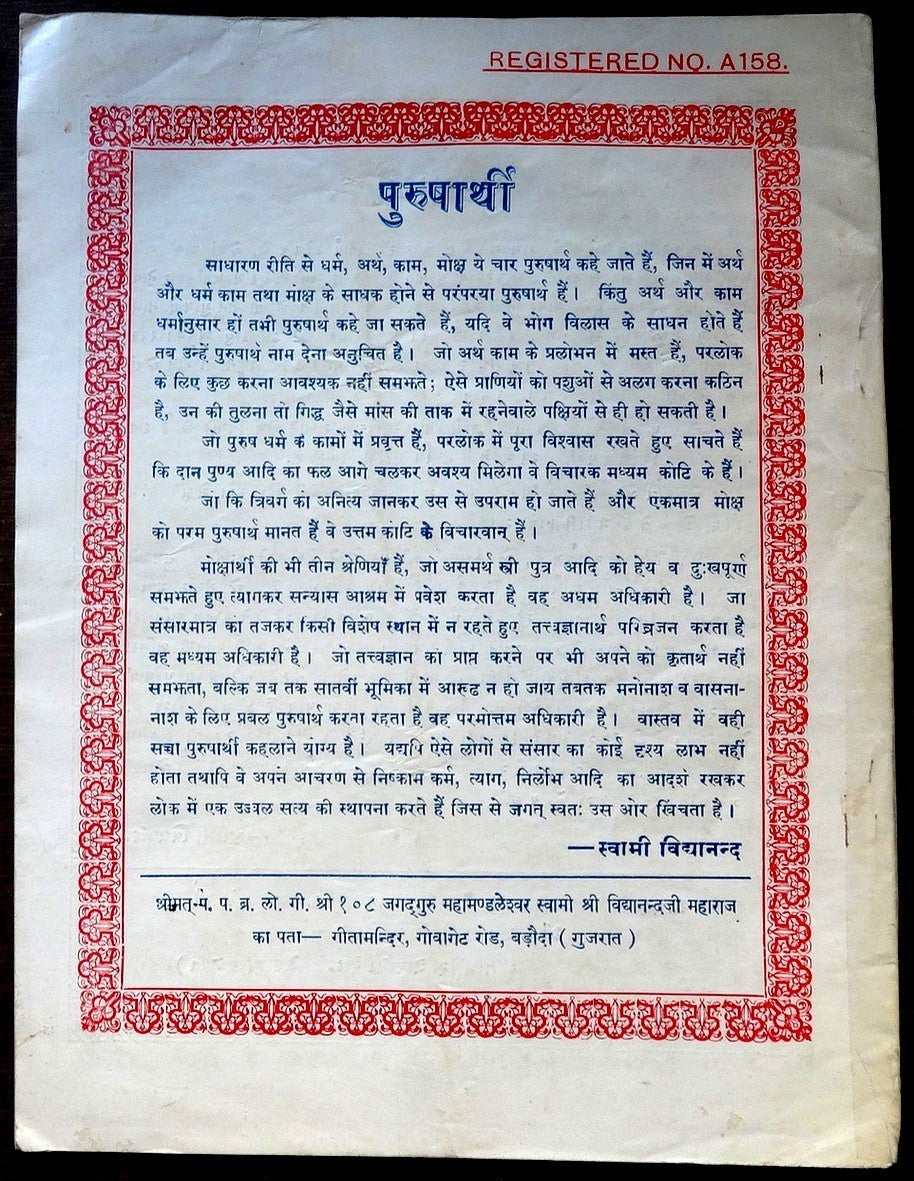 REGISTERED NO. A158.
पुरुषार्थी
साधारण रीति से धर्म, अर्थ, काम, मोक्ष ये चार पुरुषार्थ कहे जाते हैं, जिन में अर्थ
और धर्म काम तथा मोक्ष के साधक होने से परंपरया पुरुषार्थ हैं। किंतु अर्थ और काम
धर्मानुसार हों तभी पुरुषार्थ कहे जा सकते हैं, यदि वे भोग विलास के साधन होते हैं
तब उन्हें पुरुषार्थ नाम देना अनुचित है। जो अर्थ काम के प्रलोभन में मस्त हैं, परलोक
के लिए कुछ करना आवश्यक नहीं समझते; ऐसे प्राणियों को पशुओं से अलग करना कठिन
है, उन की तुलना तो गिद्ध जैसे मांस की ताक में रहनेवाले पक्षियों से ही हो सकती है।
जो पुरुष धर्म के कामों में प्रवृत्त हैं, परलोक में पूरा विश्वास रखते हुए सोचते हैं
कि दान पुण्य आदि का फल आगे चलकर अवश्य मिलेगा वे विचारक मध्यम कोटि के हैं।
जो कि त्रिवर्ग को अनित्य जानकर उस से उपराम हो जाते हैं और एकमात्र मोक्ष
को परम पुरुषार्थ मानते हैं वे उत्तम कोटि के विचारवान् हैं।
मोक्षार्थी की भी तीन श्रेणियाँ हैं, जो असमर्थ स्त्री पुत्र आदि को हेय व दुःखपूर्ण
समझते हुए त्यागकर सन्यास आश्रम में प्रवेश करता है वह अधम अधिकारी है। जो
संसारमात्र को तजकर किसी विशेष स्थान में न रहते हुए तत्त्वज्ञानार्थ परिव्रजन करता है
वह मध्यम अधिकारी है। जो तत्त्वज्ञान को प्राप्त करने पर भी अपने को कृतार्थ नहीं
समझता, बल्कि जब तक सातवीं भूमिका में आरूढ न हो जाय तबतक मनोनाश व वासना-
नाश के लिए प्रबल पुरुषार्थ करता रहता है वह परमोत्तम अधिकारी है। वास्तव में वही
सच्चा पुरुषार्थी कहलाने योग्य है। यद्यपि ऐसे लोगों से संसार का कोई दृश्य लाभ नहीं
होता तथापि वे अपने आचरण से निष्काम कर्म, त्याग, निर्लोभ आदि का आदर्श रखकर
लोक में एक उज्ज्वल सत्य की स्थापना करते हैं जिस से जगत् स्वतः उस ओर खिंचता है।
—स्वामी विद्यानन्द
श्रीमत्-प. प. ब्र. लो. गी. श्री १०८ जगद्गुरु महामण्डलेश्वर स्वामी श्री विद्यानन्दजी महाराज
का पता— गीतामन्दिर, गोयागेट रोड, बड़ौदा ( गुजरात )